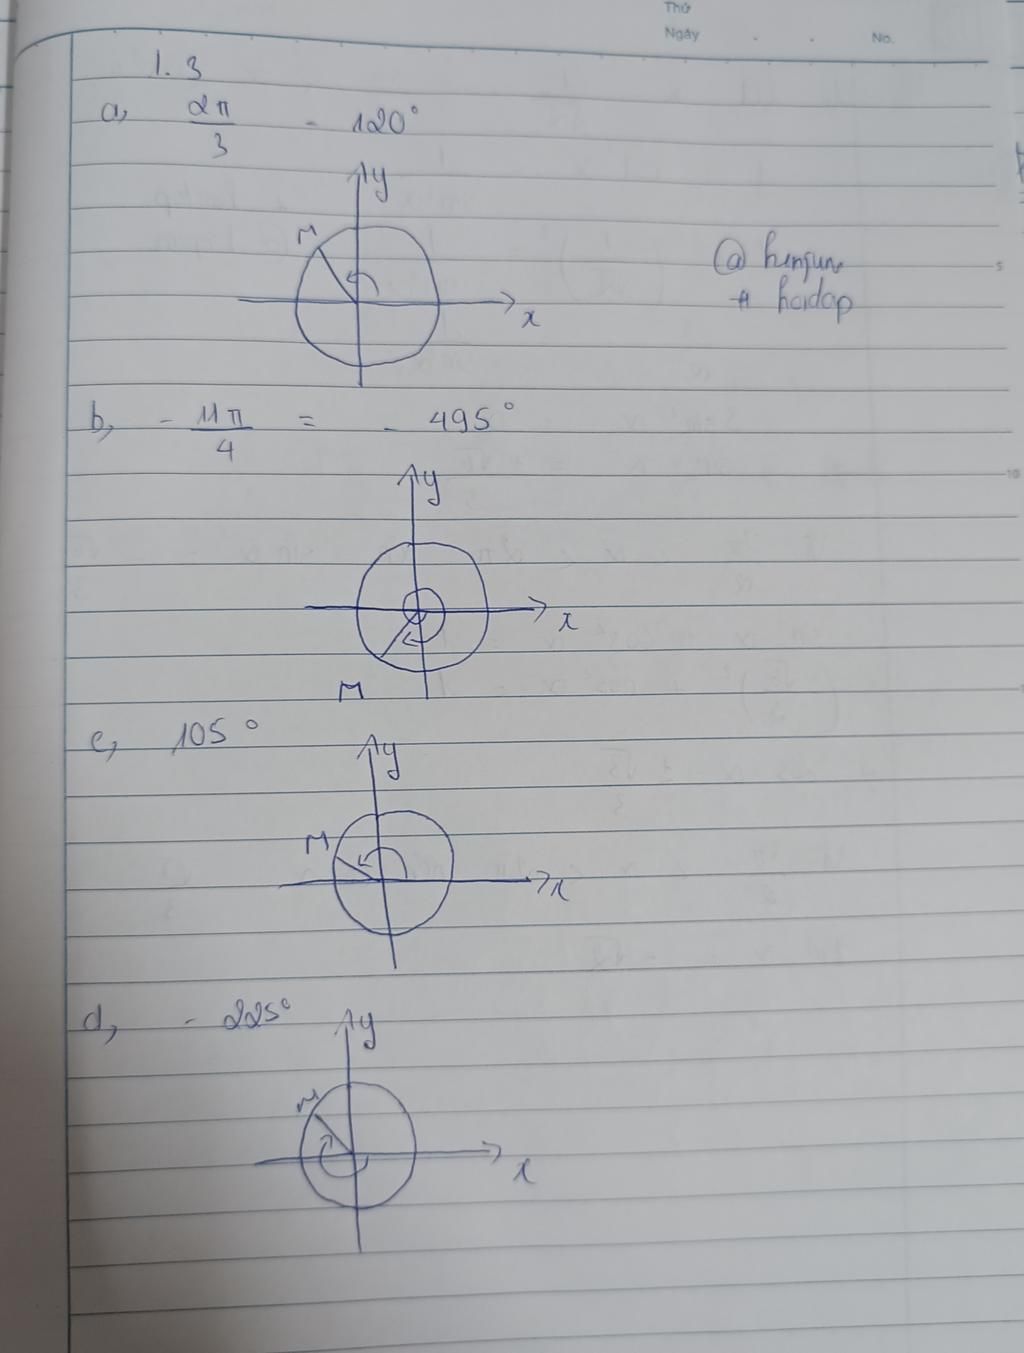 Thứ
Ngày . . No.
1.3
a, 2π/3 = 120°
y
M
x
@
+ hoidap
5
b, - 11π/4 = - 495°
10
y
x
M
c, 105°
y
M
x
d, - 225°
y
M
x